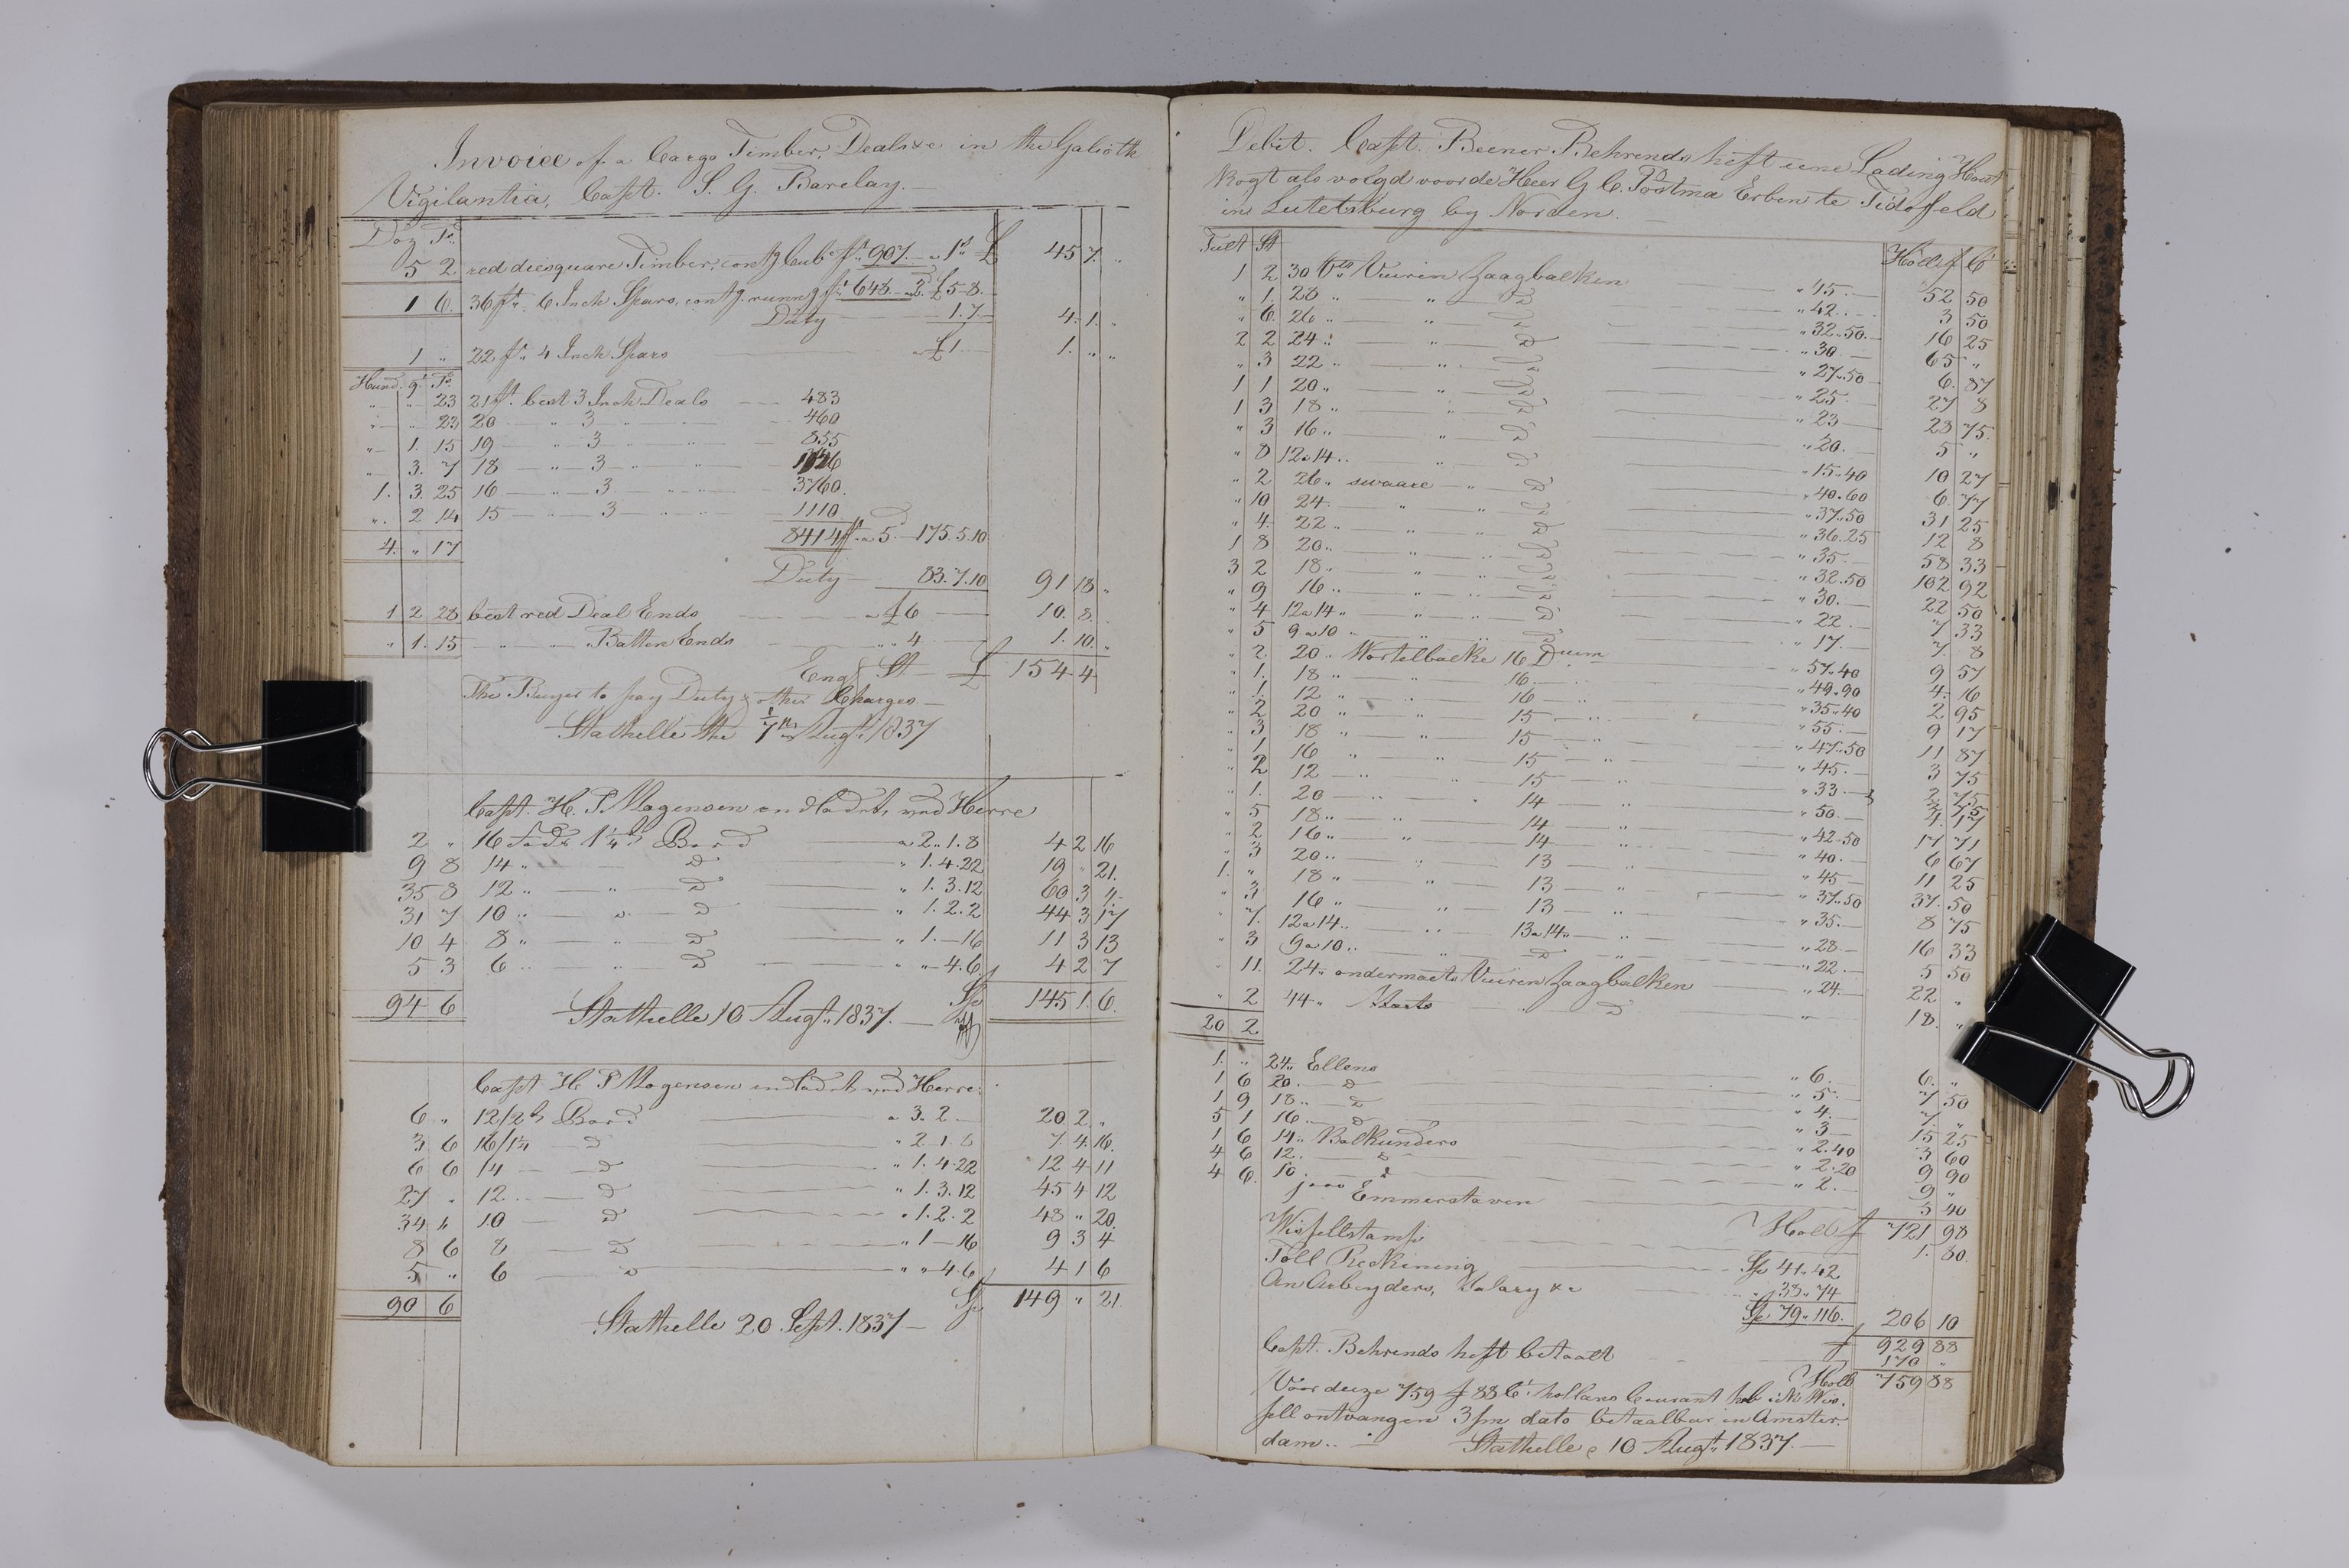 Invoice of a Cargo Timber, Deals &c in the Galioth
Vigilantia, Capt. S. G. Barclay.
Doz Ps
5 2 red diesquare Timber, contg Cubc ft 907 a 1s £ 45 7 "
1 6 36 ft 6 Inch Spars, contg. runng ft 648 a 2d £5-8
Duty 1.7 4. 1. "
1 " 22 ft 4 Inch Spars a £1 1. " "
Hund. qt Ps
" " 23 21 ft best 3 Inch Deals 483
" " 23 20 " 3 " 460
" 1. 15 19 " 3 " 855
" 3. 7 18 " 3 "
1. 3. 25 16 " 3 " 3760
" 2 14 15 " 3 " 1110
4. " 17 8414 ft a 5d 175.5.10
Duty 83.7.10 91 18 "
1 2 28 best red Deal Ends a £6 10. 8. "
" 1. 15 " " Batten Ends " 4 1. 10. "
Engl St £ 154 4
The Buyer to pay Duty & other Charges
Stathelle the 7th Augt 1837
Capt. H. P. Mogensen indladet, med Herre
2 " 16 fods 1¼t Bord a 2.1.8 4 2 16
9 8 14 " D " 1.4.22 19 " 21.
35 8 12 " " D " 1.3.12 60 3 4
31 7 10 " " D " 1.2.2 44 3 17
10 4 8 " " D " 1.—16 11 3 13
5 3 6 " " D " "-4.6 4 2 7
94 6 Sp 145 1. 6.
Stathelle 10 Augt. 1837.
Capt H P Mogensen indladet med Herre:
6 " 12/2t Bord a 3.2 20 2 "
3 6 16/1¼ D " 2.1.8 7. 4. 16.
6 6 14 D " 1.4.22 12 4 11
27 " 12 D " 1.3.12 45 4 12
34 " 10 D " 1.2.2 48 " 20.
8 6 8 D " 1—16 9 3 4
5 " 6 D " " 4.6 4 1 6
90 6 Sp 149 " 21.
Stathelle 20 Sept. 1837
Debit. Capt. Beener Behrends heft eene Lading Hout
kogt als volgd voor de Heer G. C. Postma Erben te Tidofeld
in Lutetsburg by Norden.
Tult St Holl f Ct
1 2 30 vts Vuiren Zaagbalken " 45. 52 50
" 1. 28 " " D " 42 3 50
" 6. 26 " " D " 32.50 16 25
2 2 24 " " D " 30 65 "
" 3 22 " " D " 27.50 6. 87
1 1 20 " " D " 25 27 8
1 3 18 " " D " 23 28 75.
" 3 16 " " D " 20. 5 "
" 8 12 a 14 " " D " 15.40 10 27
" 2 26 " swaare " D " 40.60 6. 77
" 10 24 " " " D " 37.50 31 25
" 4. 22 " " " D " 36.25 12 8
1 8 20 " " " D " 35 58 33
3 2 18 " " " D " 32.50 102 92
" 9 16 " " " D " 30. 22 50
" 4 12 a 14 " " " D " 22 7 33
" 5 9 a 10 " " " D " 17. 7. 8
" 2 20 " Wortelbalke 16 Duim " 57.40 9 57
" 1. 18 " " 16 " " 49.90 4. 16
" 1. 12 " " 16 " " 35.40 2 95
" 2 20 " " 15 " " 55. 9 17
" 3 18 " " 15 " " 47.50 11 87
" 1 16 " " 15 " " 45. 3 75
" 2 12 " " 15 " " 33
" 1. 20 " " 14 " " 50. 4. 17
" 5 18 " " 14 " " 42.50 17 71
" 2 16 " " 14 " " 40. 6 67
" 3 20 " " 13 " " 45 11 25
1. " 18 " " 13 " " 37.50 37. 50
" 3 16 " " 13 " " 35. 8 75
" 7. 12 a 14 " " 13 a 14 " " 28 16 33
" 3 9 a 10 " " D " " 22 5 50
" 11. 24 " ondermaets Vuiren Zaagbalken " 24. 22 "
" 2 44 " D " 18. "
20 2
1. " 24 " Ellens " 6. 6. "
1 6 20 D " 5. 7 50
1 9 18 " D " 4. 7. "
5 1 16 D " 3 15 25
1 6 14 " Balkunders " 2.40 3 60
4 6 12 " D " 2.20 9 90
4 6. 10 D " 2. 9 "
Emmerstaven 3 40
Holl f 721 98
Wissellstamp 1. 80.
Toll Rekining Sp 41.42
An Arbeyders, Salary &c " 38.74
Sp 79.116. 206 10
f 929 88
Capt. Behrends heft betaalt 170 "
Holl 759 88
Voor deeze 759 f 88 Ct holland Courant heb ik Wis-
sell ontvangen 3/m dato betaalbar in Amster-
dam.. Stathelle 10 Augt. 1837.